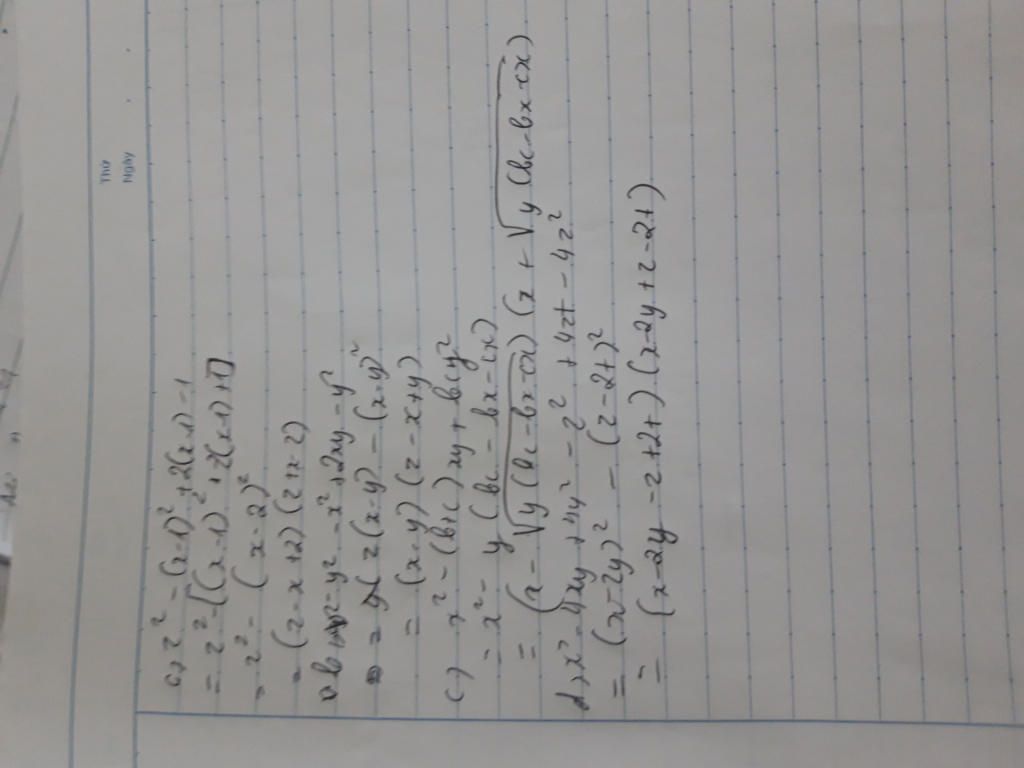 Thứ
Ngày
c) z² - (x-1)² + 2(x-1) - 1
= z² - [(x-1)² + 2(x-1) + 1]
= z² - (x-2)²
= (z-x+2)(z+x-2)
- x² + 2xy - y²
= z(x-y) - (x-y)²
= (x-y)(z-x+y)
c) x² - (b+c)xy + bcy²
= x² - y(bc - bx - cx)
= (x - √y(bc-bx-cx))(x + √y(bc-bx-cx)
d) x² - 4xy + 4y² - z² + 4zt - 4z²
= (x-2y)² - (z-2t)²
= (x-2y-z+2t)(x-2y+z-2t)